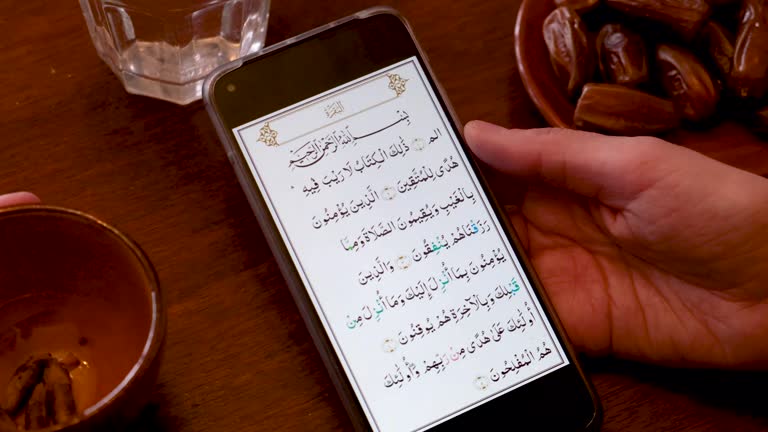 البقرة
بسم الله الرحمن الرحيم
الم ۝ ذَٰلِكَ الْكِتَابُ لَا رَيْبَ فِيهِ
هُدًى لِلْمُتَّقِينَ ۝ الَّذِينَ يُؤْمِنُونَ
بِالْغَيْبِ وَيُقِيمُونَ الصَّلَاةَ وَمِمَّا
رَزَقْنَاهُمْ يُنْفِقُونَ ۝ وَالَّذِينَ
يُؤْمِنُونَ بِمَا أُنْزِلَ إِلَيْكَ وَمَا أُنْزِلَ مِنْ
قَبْلِكَ وَبِالْآخِرَةِ هُمْ يُوقِنُونَ ۝
أُولَٰئِكَ عَلَىٰ هُدًى مِنْ رَبِّهِمْ وَأُولَٰئِكَ
هُمُ الْمُفْلِحُونَ ۝